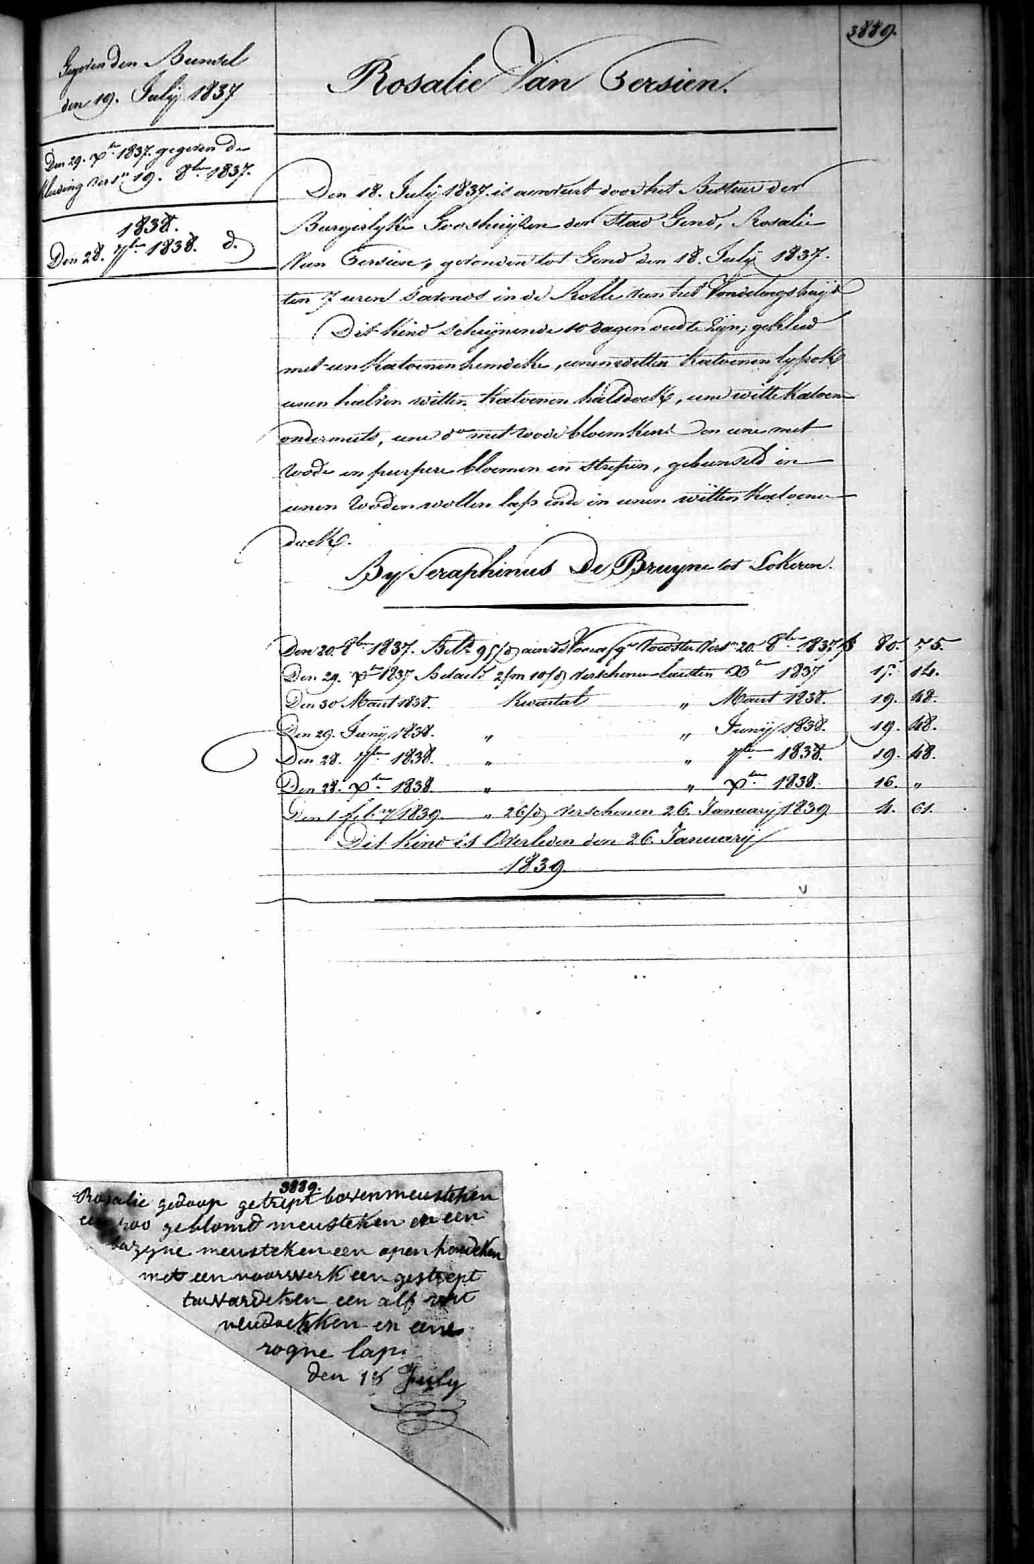 3889.
Gegeven den Bundel
den 19. Julÿ 1837
Den 29. Xbre 1837. gegeven de
kleding vers. 19. 8bre 1837.
1838.
Den 28. 7bre 1838. d.
Rosalie Van Gersien.
Den 18. Julÿ 1837. is aenveert door het Bestuer der
Burgerlyke Godshuÿzen der Stad Gend, Rosalie
Van Gersien, gevonden tot Gend den 18. Julÿ 1837.
ten 7 uren s'avonds in de Rolle van het Vondelingshuÿs
Dit Kind scheÿnende 10 dagen oud te zÿn; gekleed
met een Katoenen hemdeke, eenen witten Katoenen
eenen halven witten Katoenen halsdoek, eene witte Katoen
ondermuts, eene do met roode bloemkens en eene met
roode en purpere bloemen en strepen, gebunseld in
eenen rooden wollen lap ende in eenen witten Katoene
doek.
By Seraphinus De Bruyne tot Lokeren.
Den 20. 8bre 1837. Bet. 95/d aen de Vers. 20. 8bre 1837 f 80. 75.
Den 29. Xbre 1837 Betaelt 2/m 10/d verschenen laesten Xbre 1837 17. 14.
Den 30 Maert 1838. Kwartal " Maert 1838. 19. 48.
Den 29. Junÿ 1838. " " Junÿ 1838. 19. 48.
Den 28. 7bre 1838. " " 7bre 1838. 19. 48.
Den 28. Xbre 1838 " " Xbre 1838. 16. "
Den 1 feb. 1839. " 26/d verschenen 26. Januarÿ 1839 4. 61.
Dit Kind is Overleden den 26. Januarÿ
1839.
3889.
Rosalie gedoop getript bovenmeusteken
een roo geblomd meusteken en een
bazyne meusteken een open hemdeken
met een voorwerk een gestrept
een alf wit
neusdoekken en eene
rogne lap.
den 18 July